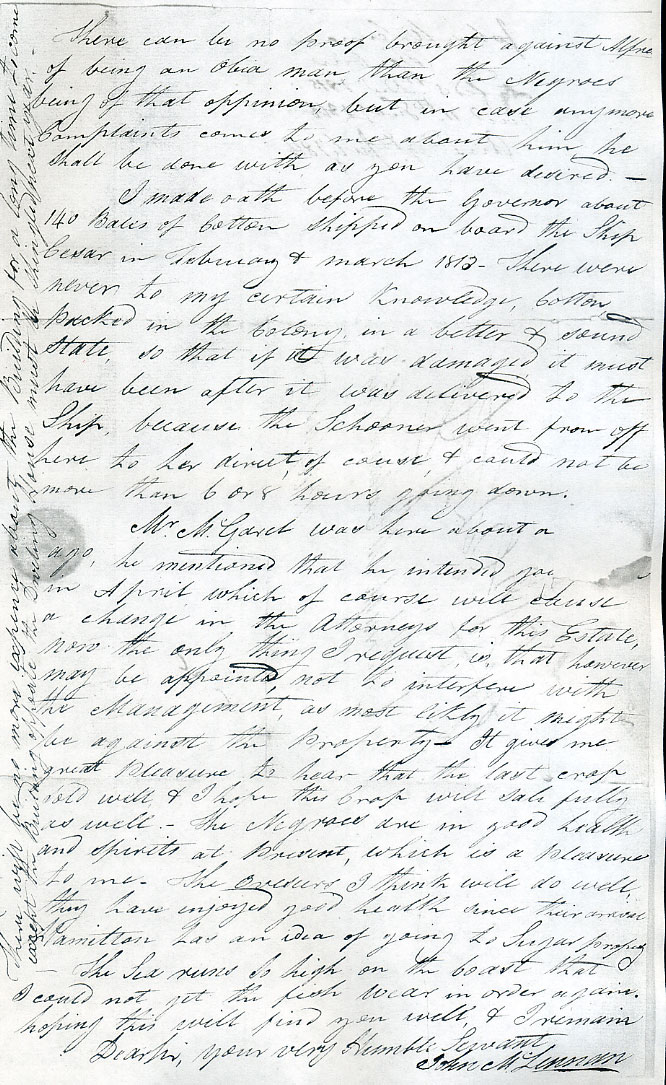 There can be no proof brought against Alfre
of being an Obia man, than the Negroes
being of that oppinion, but in case anymore
Complaints comes to me about him, he
Shall be done with as you have desired. —
I made oath before the Governor about
140 Bales of Cotton Shipped on board the Ship
Cesar in February & march 1813 - There were
never, to my certain Knowledge, Cotton
packed in the Colony, in a better & sound
State, so that if it was damaged it must
have been after it was delivered to the
Ship, because the Schooner went from off
here to her direct, of couse, & could not be
more than 6 or 8 hours going down.
Mr. McGaret was here about a
ago, he mentioned that he intended you
in April, which of course will cause
a change in the Attorneys for this Estate,
now the only thing I request, is, that however
may be appointd, not to interfere with
the Management, as most likely it might
be against the Property - It gives me
great Pleasure to hear that the last crop
sold well & I hope this Crop will sale fully
as well. - The Negroes are in good health
and spirits at Present, which is a Pleasure
to me. - The I think will do well,
they have enjoyed good health since their arival
Hamilton has an idea of going to Sugar property
- The Sea runes So high on the Coast that
I could not get the fish wear in order again.
hoping this will find you well & I remain
Dear Sir, your very Humble Servant
John McLennan
There will be no more expence about the Building for a long time to come
except the building opposite the Dweling House must be Shingled next year. -